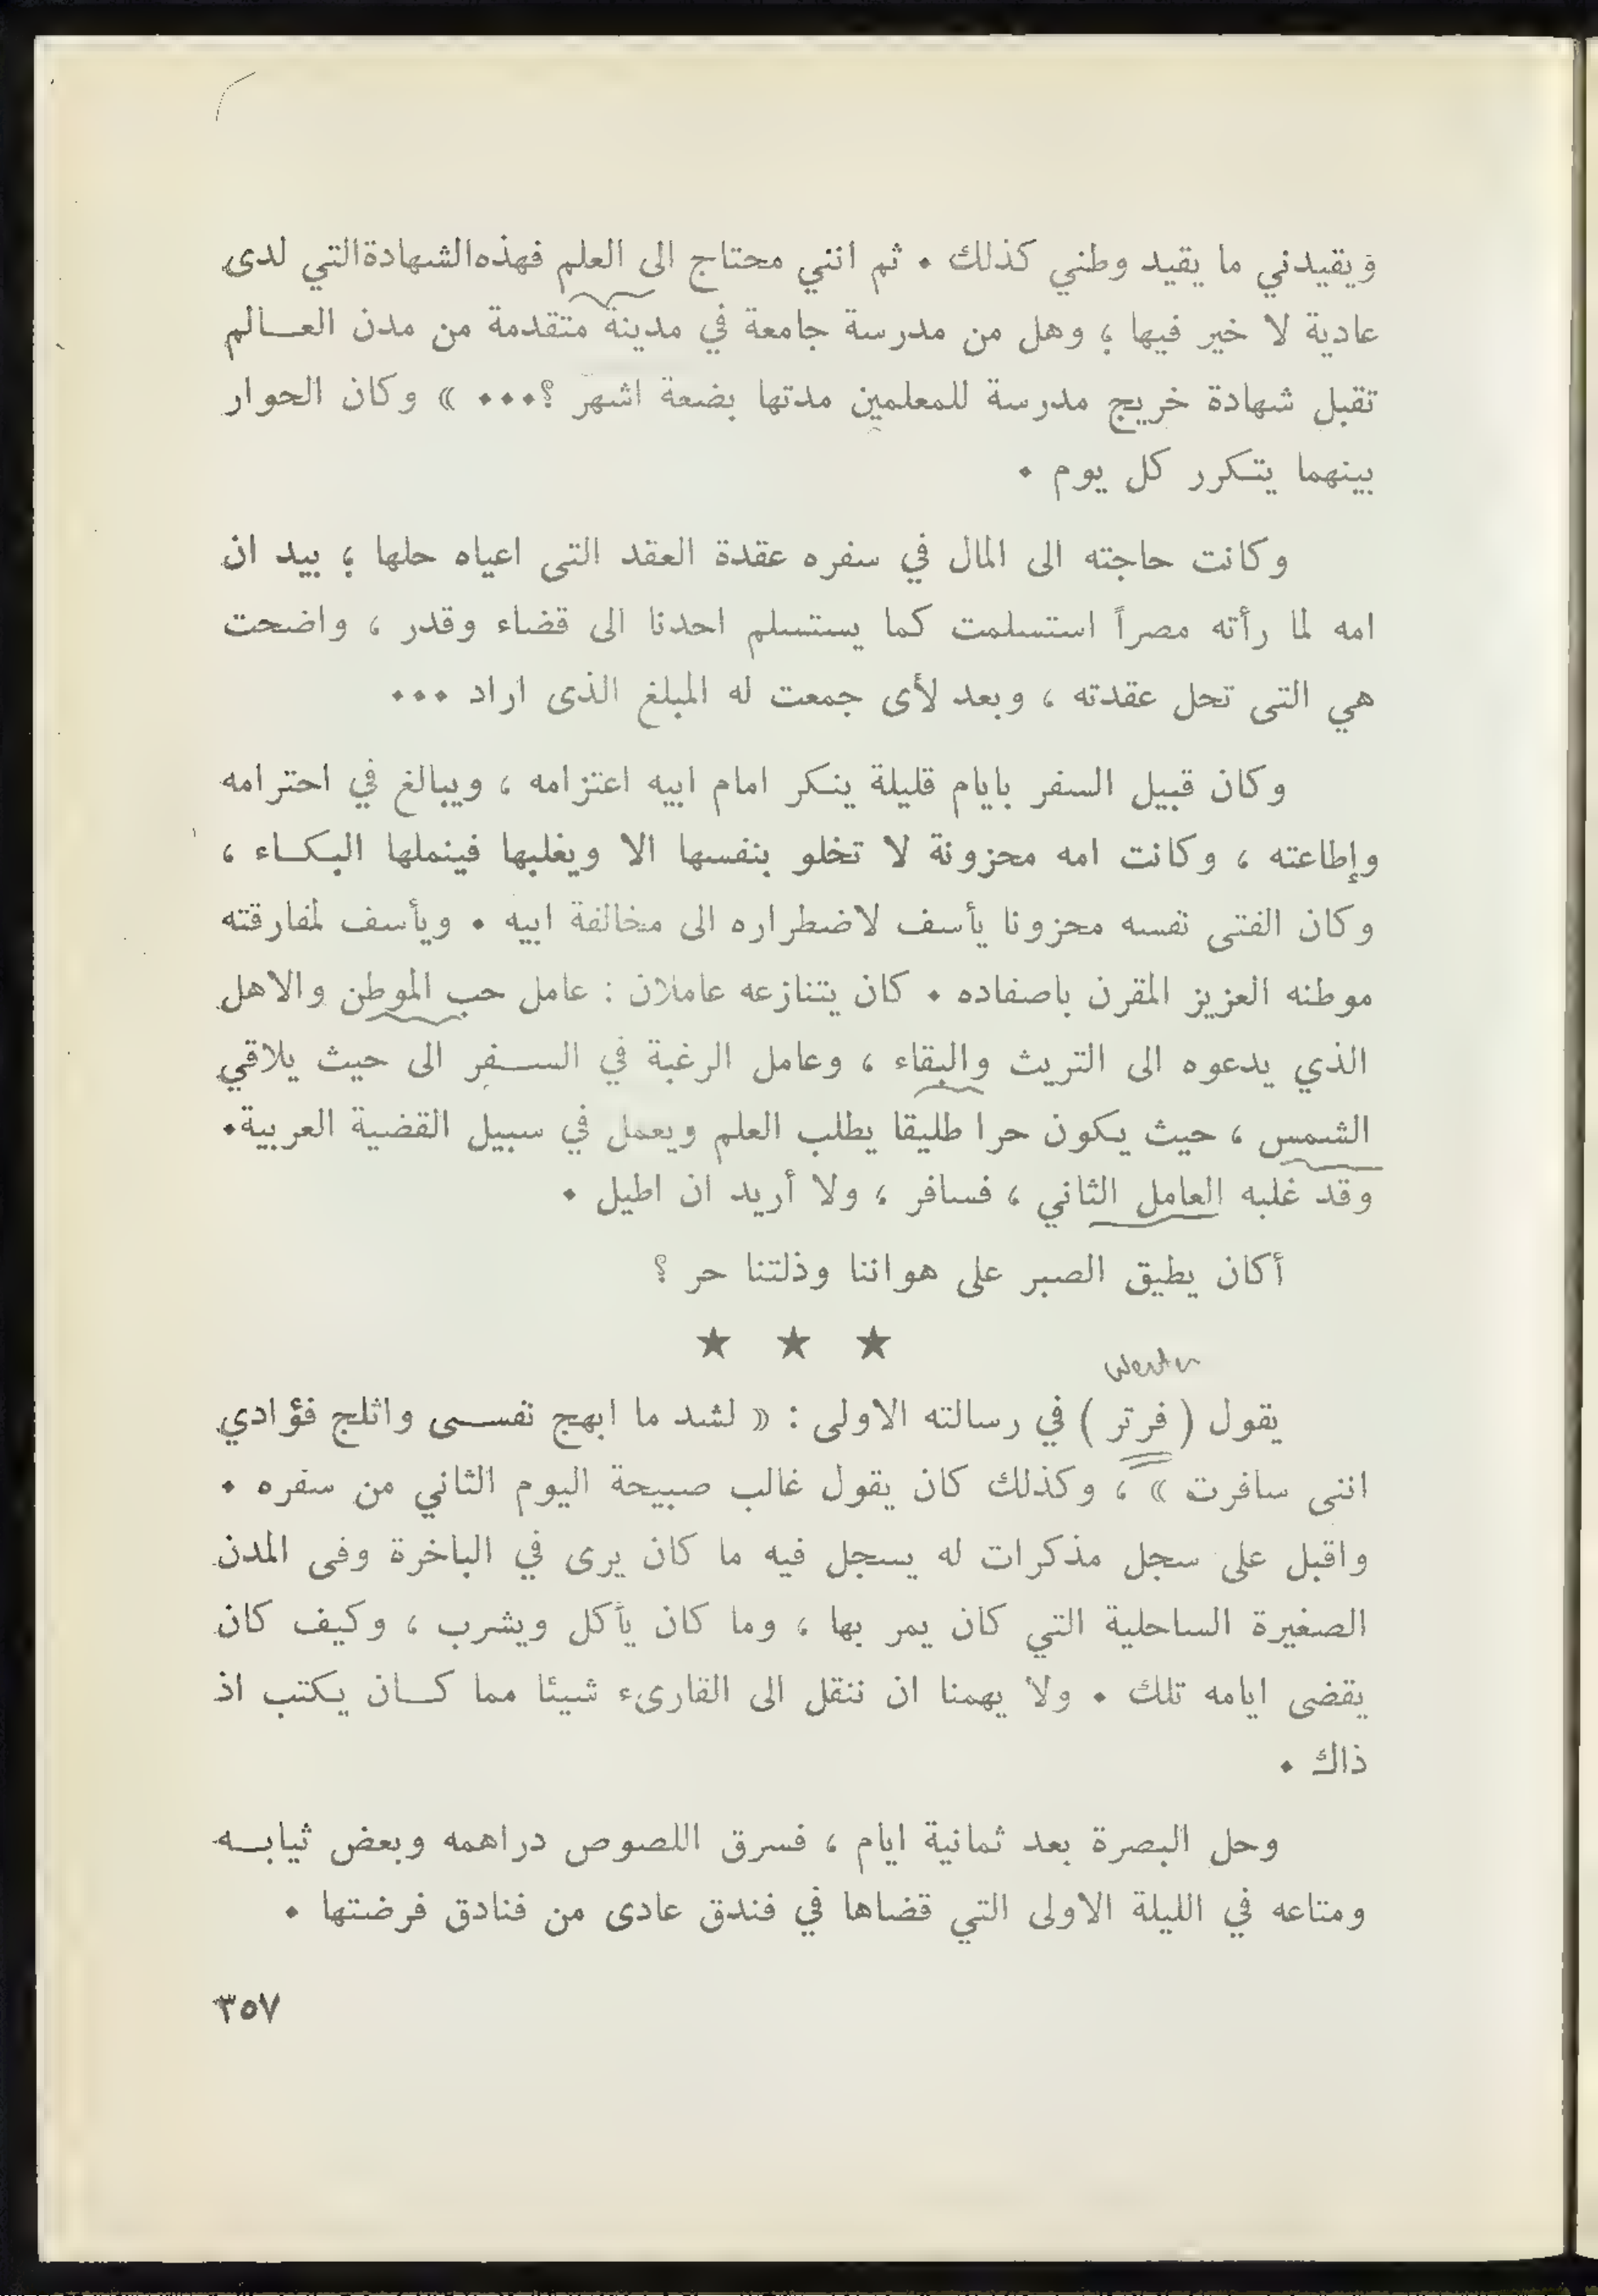 ويقيدني ما يقيد وطني كذلك . ثم انني محتاج الى العلم فهذه الشهادة التي لدى
عادية لا خير فيها ؛ وهل من مدرسة جامعة في مدينة متقدمة من مدن العـالم
تقبل شهادة خريج مدرسة للمعلمين مدتها بضعة اشهر ؟... » وكان الحوار
بينهما يتكرر كل يوم .
وكانت حاجته الى المال في سفره عقدة العقد التى اعياه حلها ؛ بيد ان
امه لما رأته مصراً استسلمت كما يستسلم احدنا الى قضاء وقدر ، واضحت
هي التى تحل عقدته ، وبعد لأى جمعت له المبلغ الذى اراد ...
وكان قبيل السفر بايام قليلة ينكر امام ابيه اعتزامه ، ويبالغ في احترامه
وإطاعته ، وكانت امه محزونة لا تخلو بنفسها الا ويغلبها فينملها البكـاء ،
وكان الفتى نفسه محزونا يأسف لاضطراره الى مخالفة ابيه . ويأسف لمفارقته
موطنه العزيز المقرن باصفاده . كان يتنازعه عاملان : عامل حب الموطن والاهل
الذي يدعوه الى التريث والبقاء ، وعامل الرغبة في السـفر الى حيث يلاقي
الشمس ، حيث يكون حرا طليقا يطلب العلم ويعمل في سبيل القضية العربية.
وقد غلبه العامل الثاني ، فسافر ، ولا أريد ان اطيل .
أكان يطيق الصبر على هواننا وذلتنا حر ؟
★ ★ ★
Werter
يقول ( فرتر ) في رسالته الاولى : « لشد ما ابهج نفسـى واثلج فؤادي
اننى سافرت » ، وكذلك كان يقول غالب صبيحة اليوم الثاني من سفره .
واقبل على سجل مذكرات له يسجل فيه ما كان يرى في الباخرة وفى المدن
الصغيرة الساحلية التي كان يمر بها ، وما كان يأكل ويشرب ، وكيف كان
يقضى ايامه تلك . ولا يهمنا ان ننقل الى القارىء شيئا مما كـان يكتب اذ
ذاك .
وحل البصرة بعد ثمانية ايام ، فسرق اللصوص دراهمه وبعض ثيابـه
ومتاعه في الليلة الاولى التي قضاها في فندق عادى من فنادق فرضتها .
٣٥٧